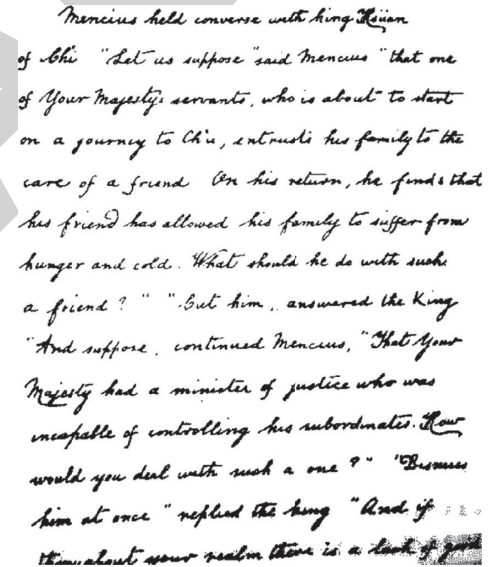 Mencius held converse with king Hsüan
of Chi "Let us suppose "said Mencius "that one
of Your Majesty's servants, who is about to start
on a journey to Ch'u, entrusts his family to the
care of a friend On his return, he finds that
his friend has allowed his family to suffer from
hunger and cold. What should he do with such
a friend? " "Cut him, answered the King
"And suppose, continued Mencius, "That Your
Majesty had a minister of justice who was
incapable of controlling his subordinates. How
would you deal with such a one ?" "Dismiss
him at once " replied the king "And if
throughout your realm there is a lack of good